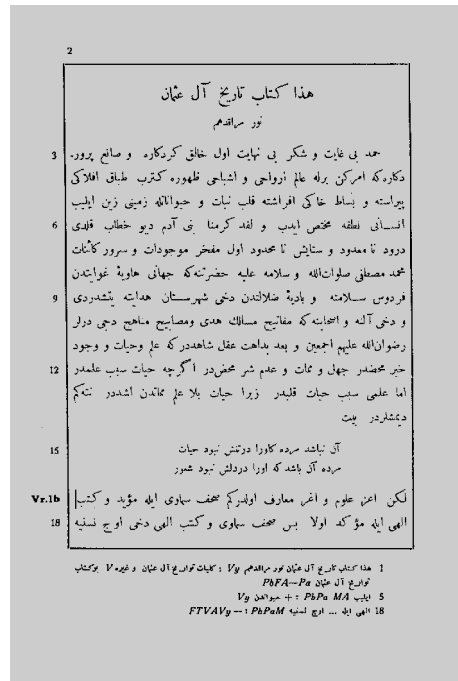 2
هذا كتاب تاريخ آل عثمان
نور مراقدهم
3 حمد بى غايت و شكر بى نهايت اول خالق كردكاره و صانع پرور‌-
دكاره كه امركن برله عالم ارواحى و اشباحى ظهوره كتردى طباق افلاكى
پيراسته و بساط خاكى افراشته قلب نبات و حيواناتله زمينى زين ايليب
6 انسانى لطفه مختص ايدب و لقد كرمنا بنى آدم ديو خطاب قلدى
درود نا معدود و ستايش نا محدود اول مفخر موجودات و سرور كائنات
محمد مصطفى صلوات‌الله و سلامه عليه حضرتنه كه جهانى هاويهٔ غوايتدن
9 فردوس سلامته و باديهٔ ضلالتدن دخى شهرستان هدايته يتشدردى
و دخى آلنه و اصحابنه كه مفاتيح مسالك هدى ومصابيح مناهج دجى درلر
رضوان‌الله عليهم اجمعين و بعد بداهت عقل شاهددر كه علم وحيات و وجود
12 خير محضدر جهل و ممات و عدم شر محض‌در اگرچه حيات سبب علمدر
اما علمى سبب حيات قليدر زيرا حيات بلا علم مماتدن اشددر نته‌كم
ديمشلردر بيت
15 آن نباشد مرده كاورا درتنش نبود حيات
مرده آن باشد كه اورا دردلش نبود شعور
Vr.1b لكن اعز علوم و اغر معارف اولدركم صحف سماوى ايله مؤيد و كتب
18 الهى ايله مؤكد اولا بس صحف سماوى و كتب الهى دخى اوچ نسنيه
1 هذا كتاب تاريخ آل عثمان نور مراقدهم Vy : كليات تواريخ آل عثمان و غيره V بوكتاب
تواريخ آل عثمان PbFA—Pa
5 ايليب PbPa MA : + حيواندن Vy
18 الهى ايله ... اوچ نسنيه PbPaM : — FTVAVy